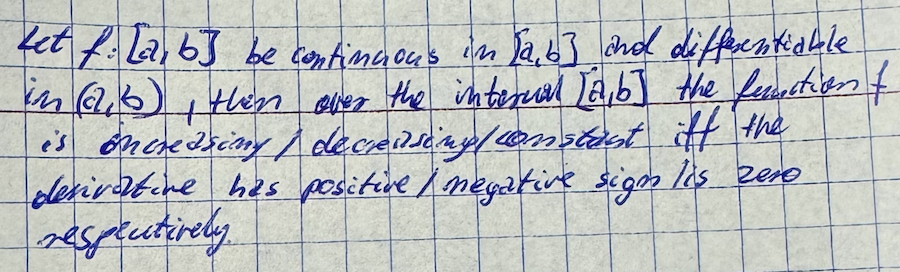 Let f: [a,b] be continuous in [a,b] and differentiable
in (a,b), then over the interval [a,b] the function f
is increasing / decreasing / constant iff the
derivative has positive / negative sign / is zero
respectively.